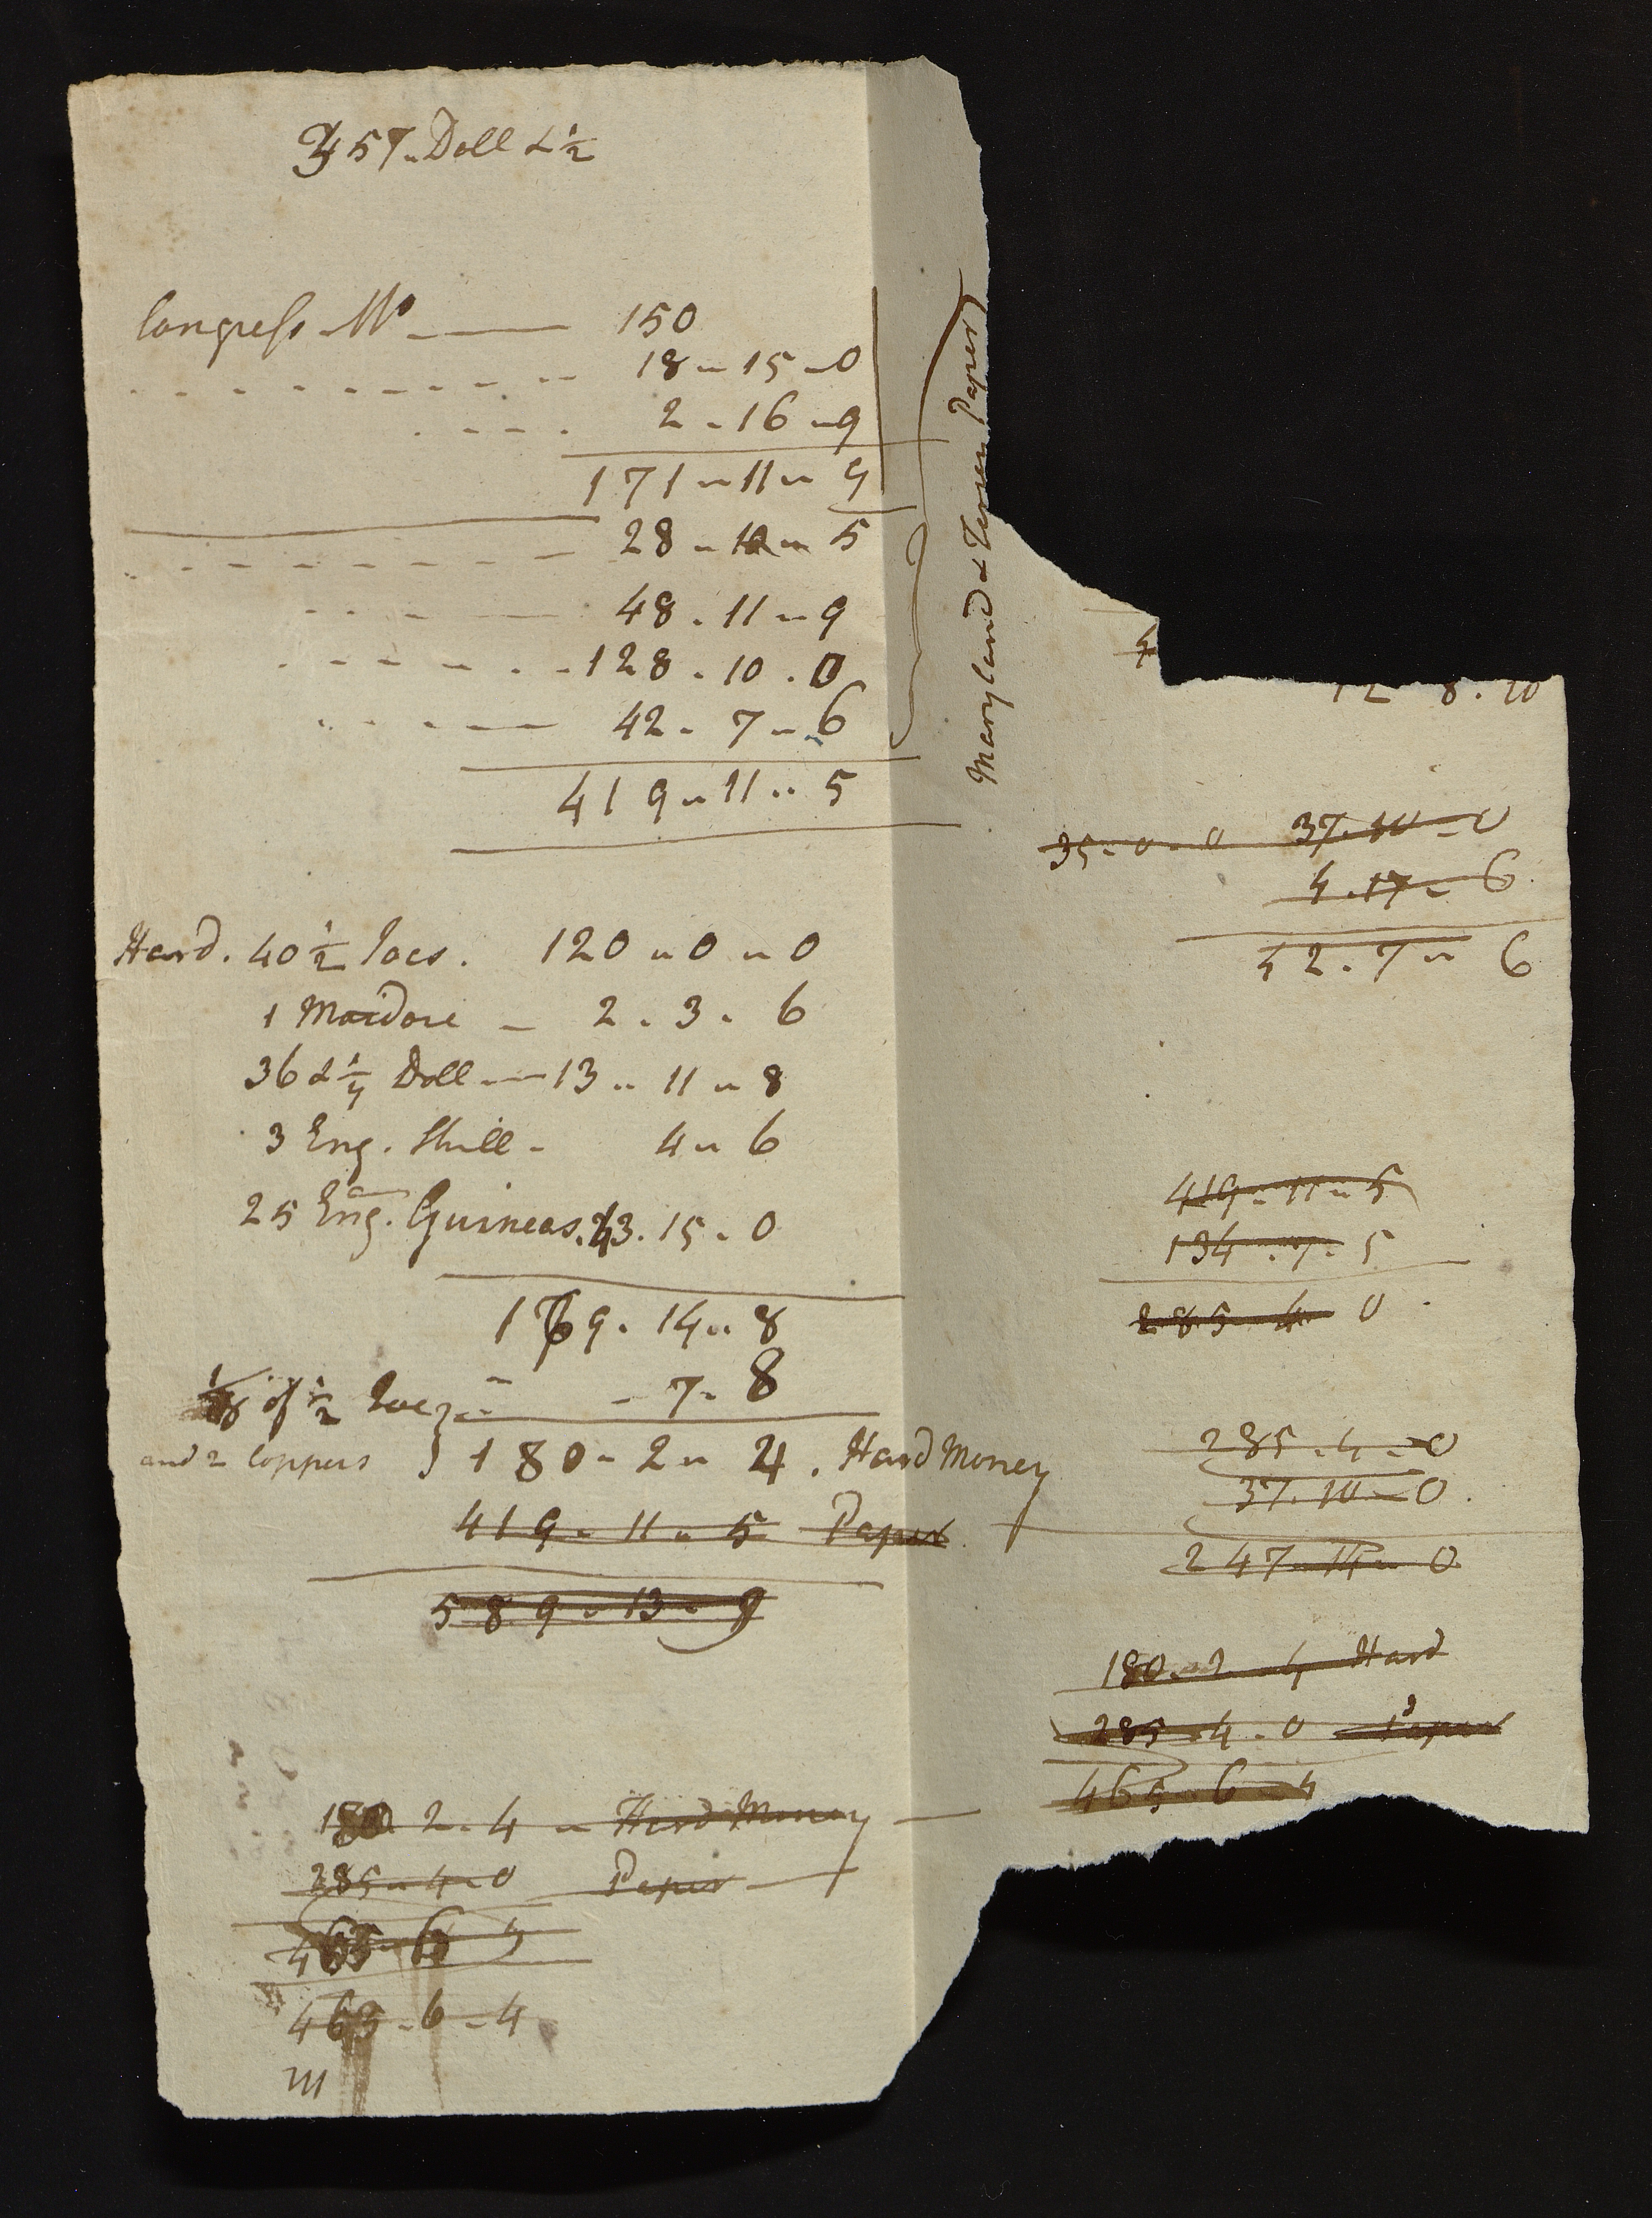 457 Doll & ½
Congress Mo — 150
18 - 15 - 0
2 - 16 - 9
171 - 11 - 9
28 - 10 - 5
48 . 11 - 9
128 . 10 . 0
42 . 7 - 6
419 - 11 - 5
Maryland & Paper
Hard . 40 ½ Joes . 120 - 0 - 0
1 Moidore - 2 . 3 . 6
36 & ¼ Doll - 13 - 11 - 8
3 Eng . Shill - 4 - 6
25 Eng . Guineas . 43 . 15 . 0
179 . 14 - 8
of ½ Joe - 7 - 8
and 2 Coppers } 180 - 2 - 4 . Hard Money
419 - 11 - 5 Paper
589 - 13 - 9
180 . 2 . 4 - Hard Money
285 - 4 - 0 Paper
465 - 6
465 - 6 - 4
12 8 . 10
35 - 0 - 0 37 . 10 - 0
4 . 17 - 6
42 . 7 - 6
419 - 11 - 5
134 . 7 . 5
285 - 4 0
285 . 4 - 0
37 . 10 - 0
247 - 14 - 0
180 - 2 - 4 Hard
285 - 4 - 0 Paper
465 - 6 - 4